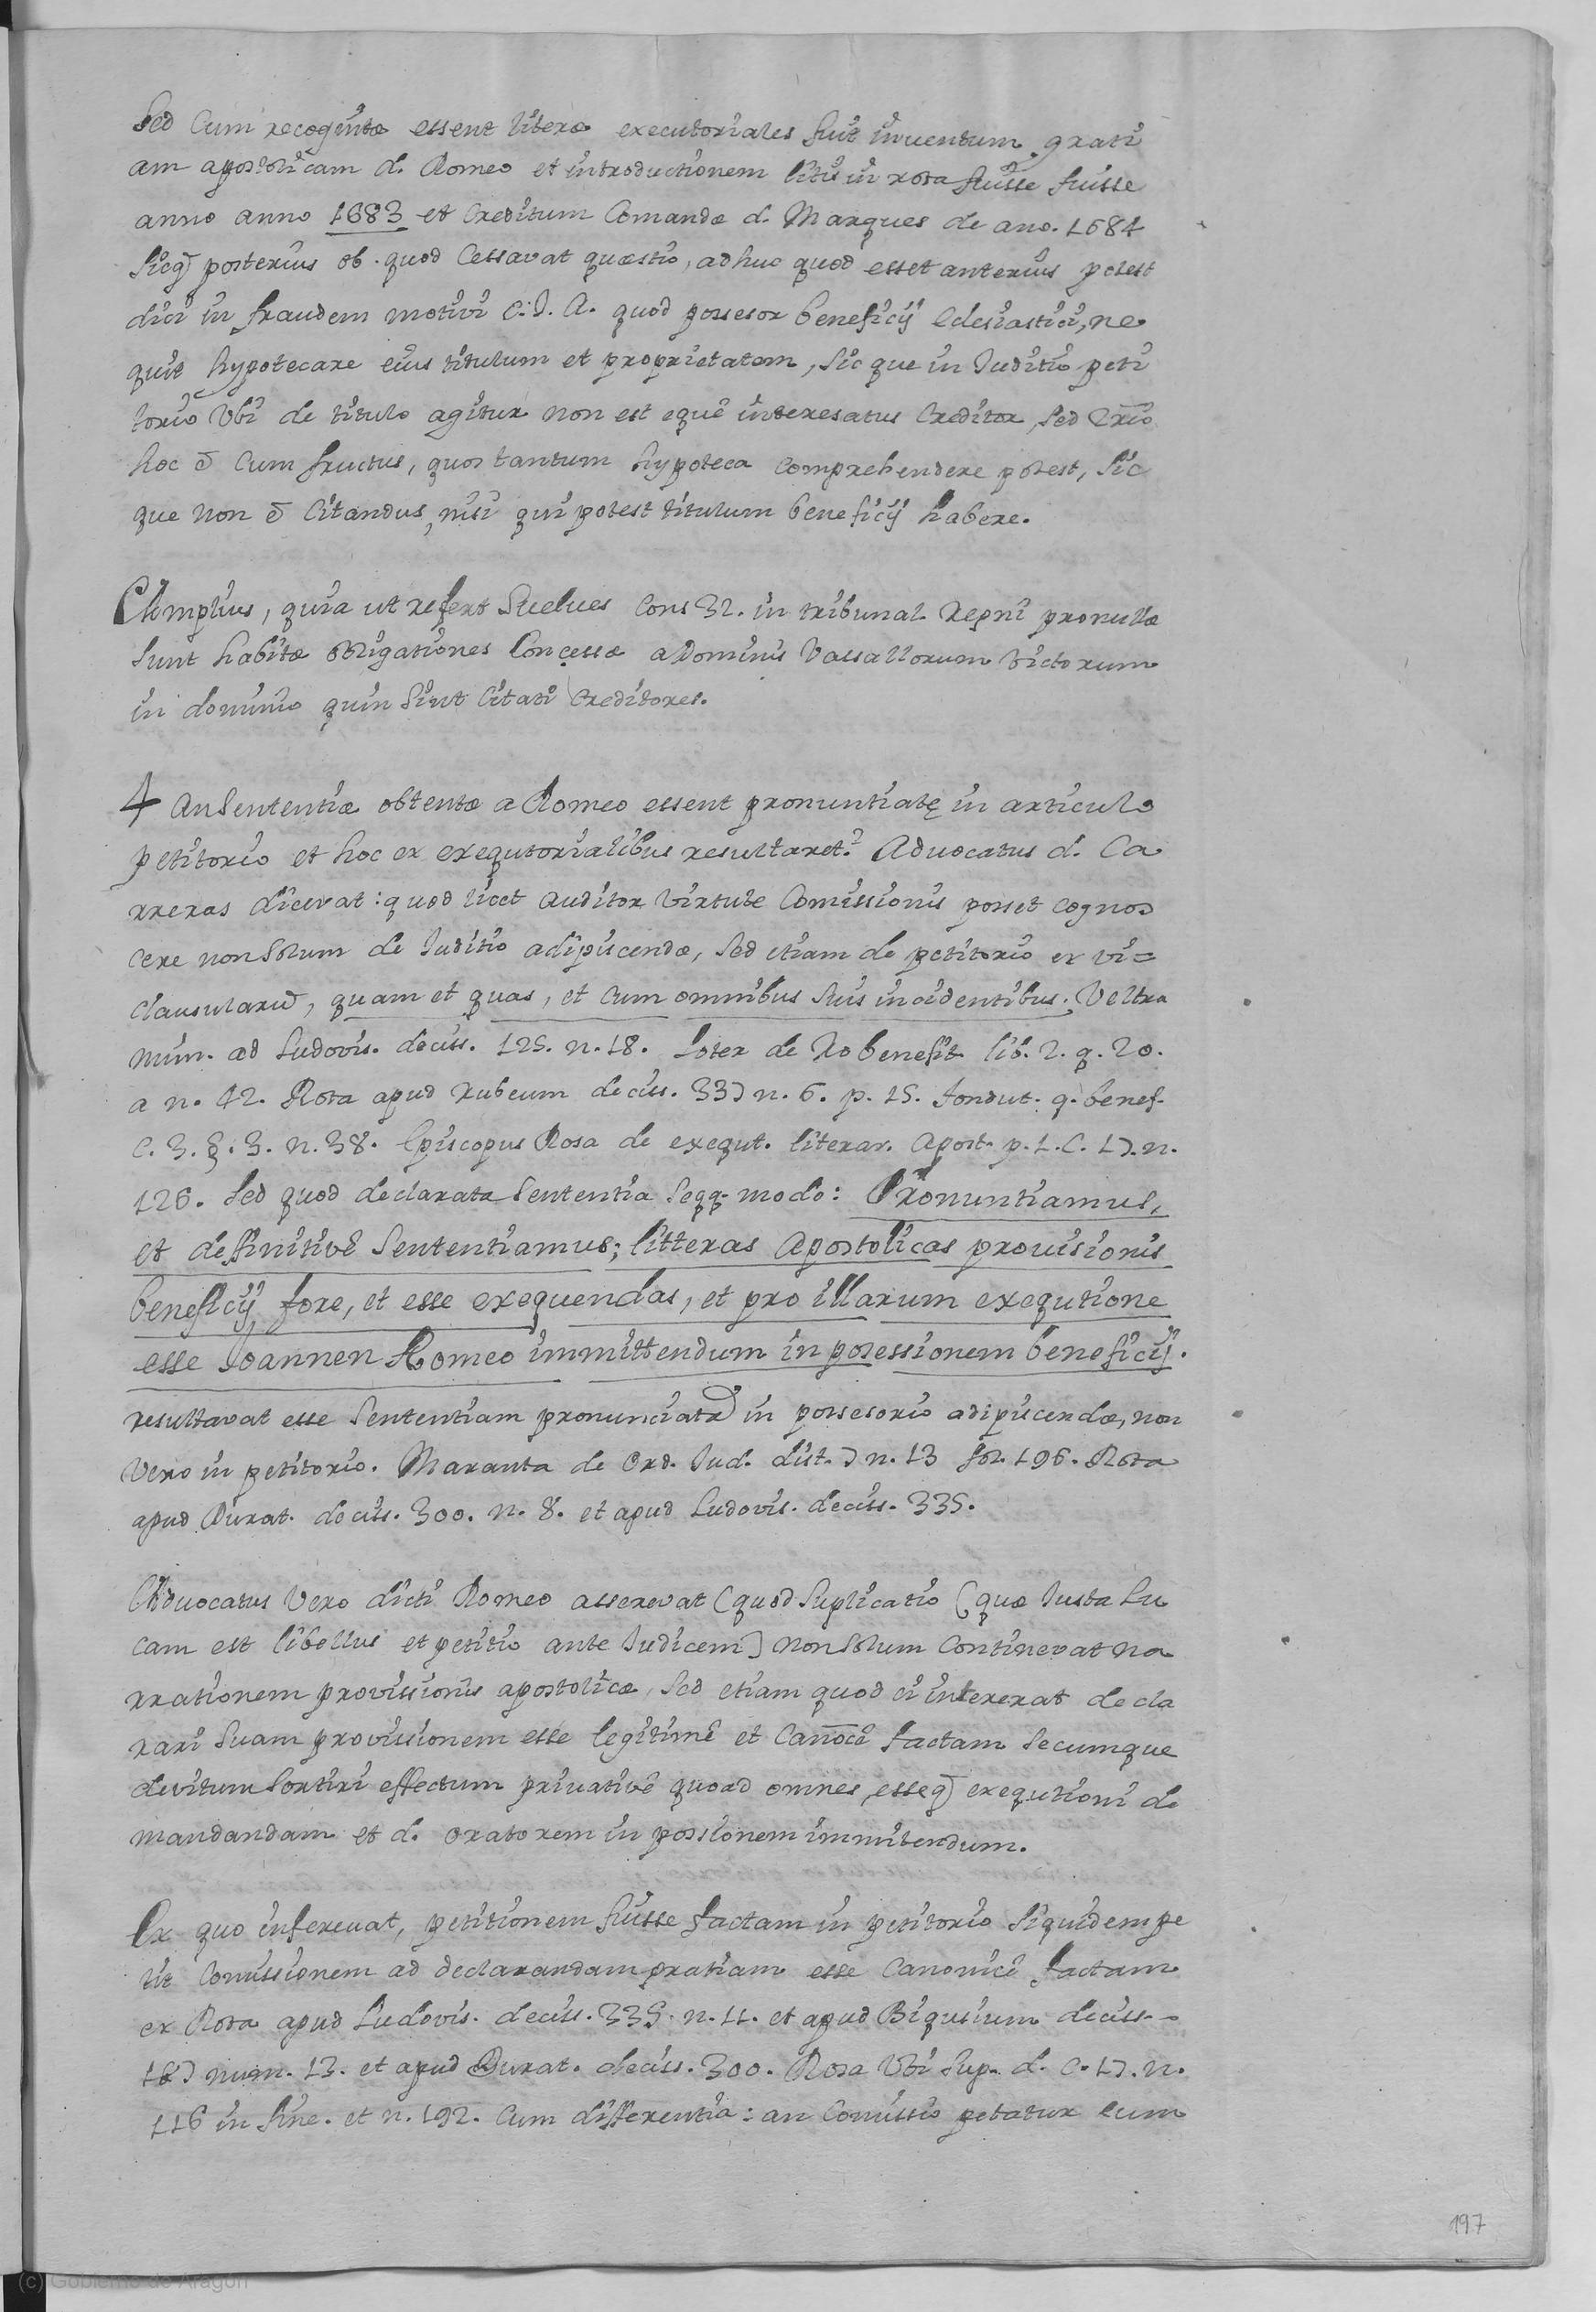 Sed Cum recoginta essent literæ executoriales fuit inventum grati
am apostolicam d. Romeo et introductionem litis in rota fuisse fuisse
anno anno 1683 et Creditum Comandæ d. Marques de ano. 1684
sicq posterius ob quod Cessavat quæstio, adhuc quod esset anterius potest
dici in fraudem motivi C. J. A. quod possesor beneficij Eclesiastici, ne
quit hypotecare eius titulum et proprietatem, sic que in Juditio peti
torio Vbi de titulo agitur non est equê interesatus Creditor, sed
hoc ē Cum fructus, quos tantum hypoteca Comprehendere potest, sic
que non ē Citandus, nisi qui potest titulum beneficij habere.
Amplius, quia ut refert Suelves Cons 32. in tribunal Regni pro nullæ
sunt habitæ obligationes Concessæ a Dominis Vassallorum Victorum
in dominio quin sint Citati Creditores.
4 an Sententiæ obtentæ a Romeo essent pronuntiatę in articulo
petitorio et hoc ex exequtorialibus resultaret? Advocatus d. Ca
rreras dicevat: quod licet auditor Virtute Comissionis posset cognos
cere non solum de Juditio adipiscendæ, sed etiam de petitorio ex vi=
clausularū, quam et quas, et cum omnibus suis incidentibus. Veltra
min. ad Ludovis. deciss. 125. n. 18. Loter de Re benefit. lib. 2. q. 20.
a n. 42. Rota apud Rubeum deciss. 337 n. 6. p. 15. tondut. q. benef.
C. 3. §. 3. n. 38. Episcopus Rosa de exequt. literar. Apost. p. 1. C. 17. n.
126. Sed quod declarata Sententia seqq. modo: Pronuntiamus,
et deffinitivê Sententiamus; litteras Apostolicas provisionis
beneficij fore, et esse exequendas, et pro illarum exequtione
esse Joannen Romeo immittendum in posessionem beneficij.
resultavat esse Sententiam pronunciatā in possesorio adipiscendæ, non
Vero in petitorio. Maranta de Ord. Jud. dist. 7 n. 13 fol. 196. Rota
apud Durat. deciss. 300. n. 8. et apud Ludovis. deciss. 335.
Advocatus Vero dicti Romeo asserevat (quod Suplicatio (quæ Justa Lu
cam est libellus et petitio ante Judicem) non solum Continevat na
rrationem provissionis apostolicæ, sed etiam quod ei intererat decla
rari suam provissionem esse legitimê et Canoce factam Secumque
devitum sortiri effectum privativê quoad omnes, esseq exequtioni de
mandandam et d. oratorem in possionem immitendum.
Ex quo inferevat, petitionem fuisse factam in petitorio siquidem pe
tit Comissionem ad declarandam gratiam esse Canonicê factam
ex Rota apud Ludovis. deciss. 335. n. 11. et apud Biqusium deciss.
167 num. 13. et apud Durat. deciss. 300. Rosa Vbi sup. d. C. 17. n.
116 in fine. et n. 192. Cum differentia: an Comissio petatur cum
197
(c) Gobierno de Aragón